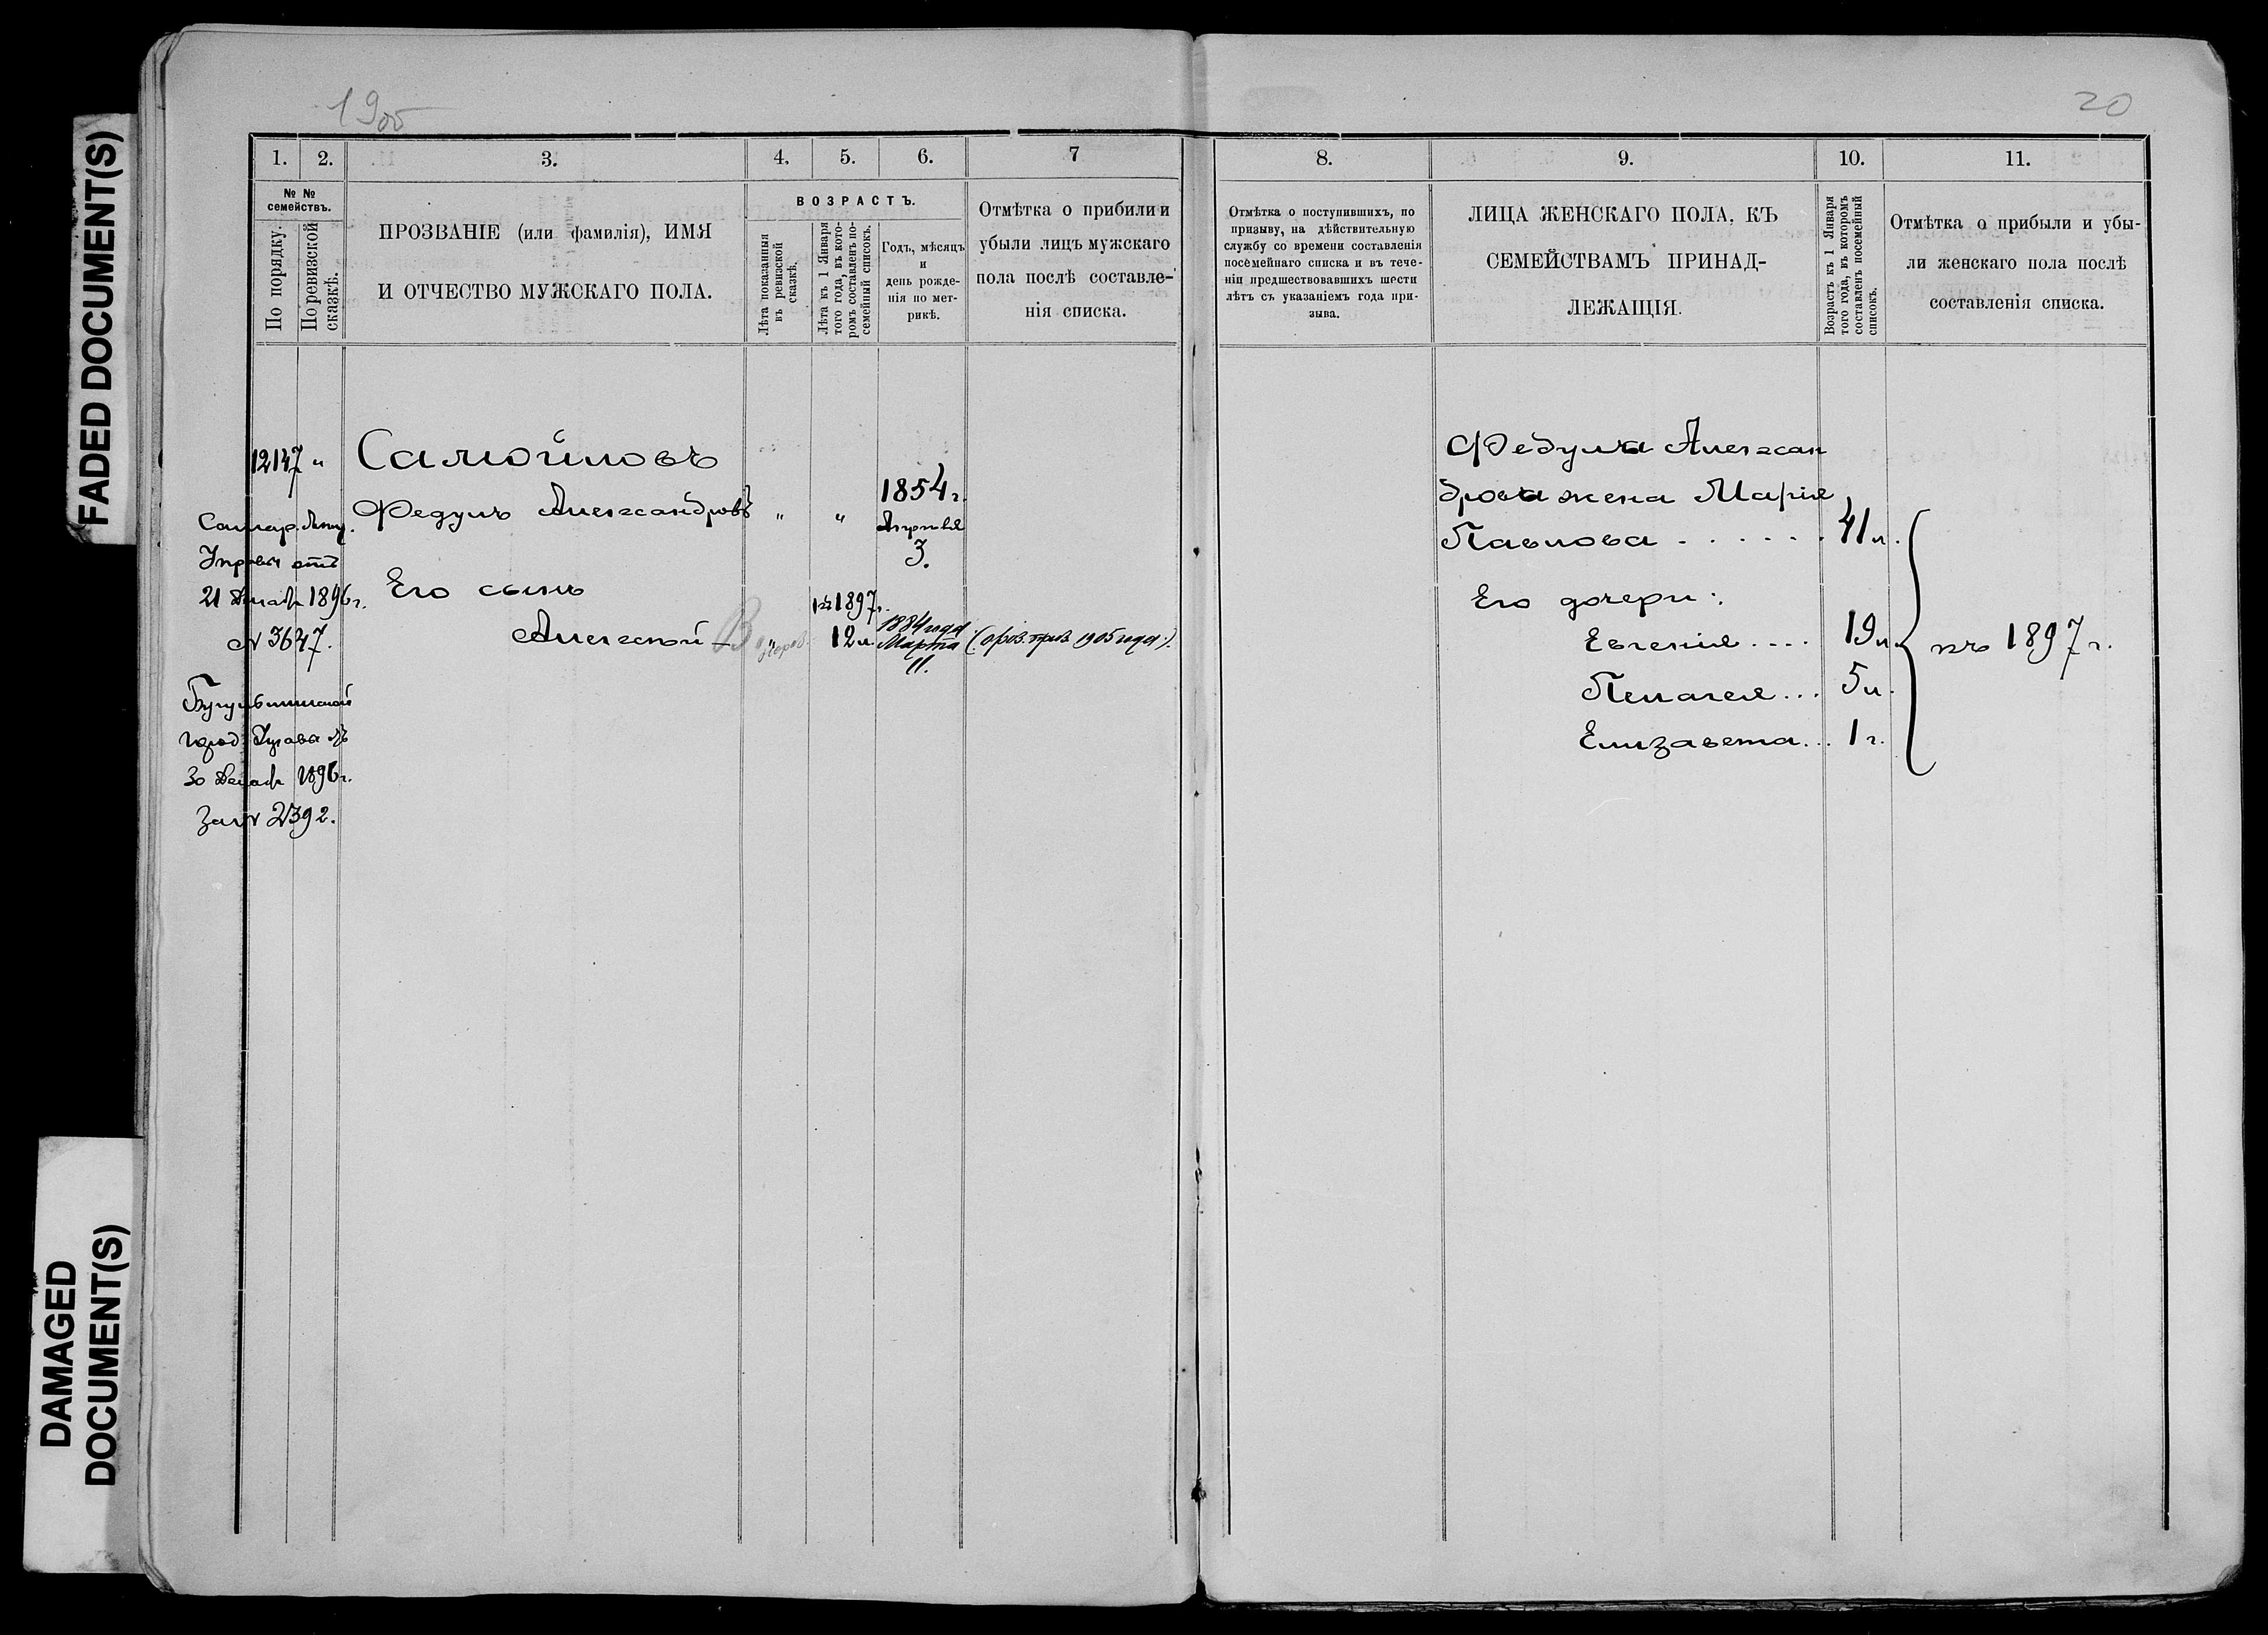 FADED DOCUMENT(S)
DAMAGED
DOCUMENT(S)
1905
1.
2.
3.
4.
5.
6.
7
№ №
семействъ.
По порядку.
По ревизской
сказкѣ.
ПРОЗВАНІЕ (или фамилія), ИМЯ
И ОТЧЕСТВО МУЖСКАГО ПОЛА.
ВОЗРАСТЪ.
Лѣта показанныя
въ ревизской
сказкѣ.
Лѣта къ 1 Января
того года, въ кото-
ромъ составленъ по-
семейный списокъ.
Годъ, мѣсяцъ
и
день рожде-
нія по мет-
рикѣ.
Отмѣтка о прибыли и
убыли лицъ мужскаго
пола послѣ составле-
нія списка.
12147 "
Самойловъ
Федулъ Александровъ " "
1854 г.
Апрѣля
3.
Самар.
Управы отъ
21 Декабр 1896 г.
№ 3647.
Бугульминской
город. Управы отъ
30 Декабр 1896 г.
за № 2392.
Его сынъ
Алексѣй
къ 1897 г.
12 л.
1884 года
Марта
11.
(: приз. 1905 года :)
20
8.
9.
10.
11.
Отмѣтка о поступившихъ, по
призыву, на дѣйствительную
службу со времени составленія
посемейнаго списка и въ тече-
ніи предшествовавшихъ шести
лѣтъ съ указаніемъ года при-
зыва.
ЛИЦА ЖЕНСКАГО ПОЛА, КЪ
СЕМЕЙСТВАМЪ ПРИНАД-
ЛЕЖАЩІЯ.
Возрастъ къ 1 Января
того года, въ которомъ
составленъ посемейный
списокъ.
Отмѣтка о прибыли и убы-
ли женскаго пола послѣ
составленія списка.
Федула Алексан
дрова жена Марія
Павлова . . . . . . 41 л.
Его дочери:
Евгенія .... 19 л.
Пелагея ... 5 л.
Елизавета... 1 г.
къ 1897 г.